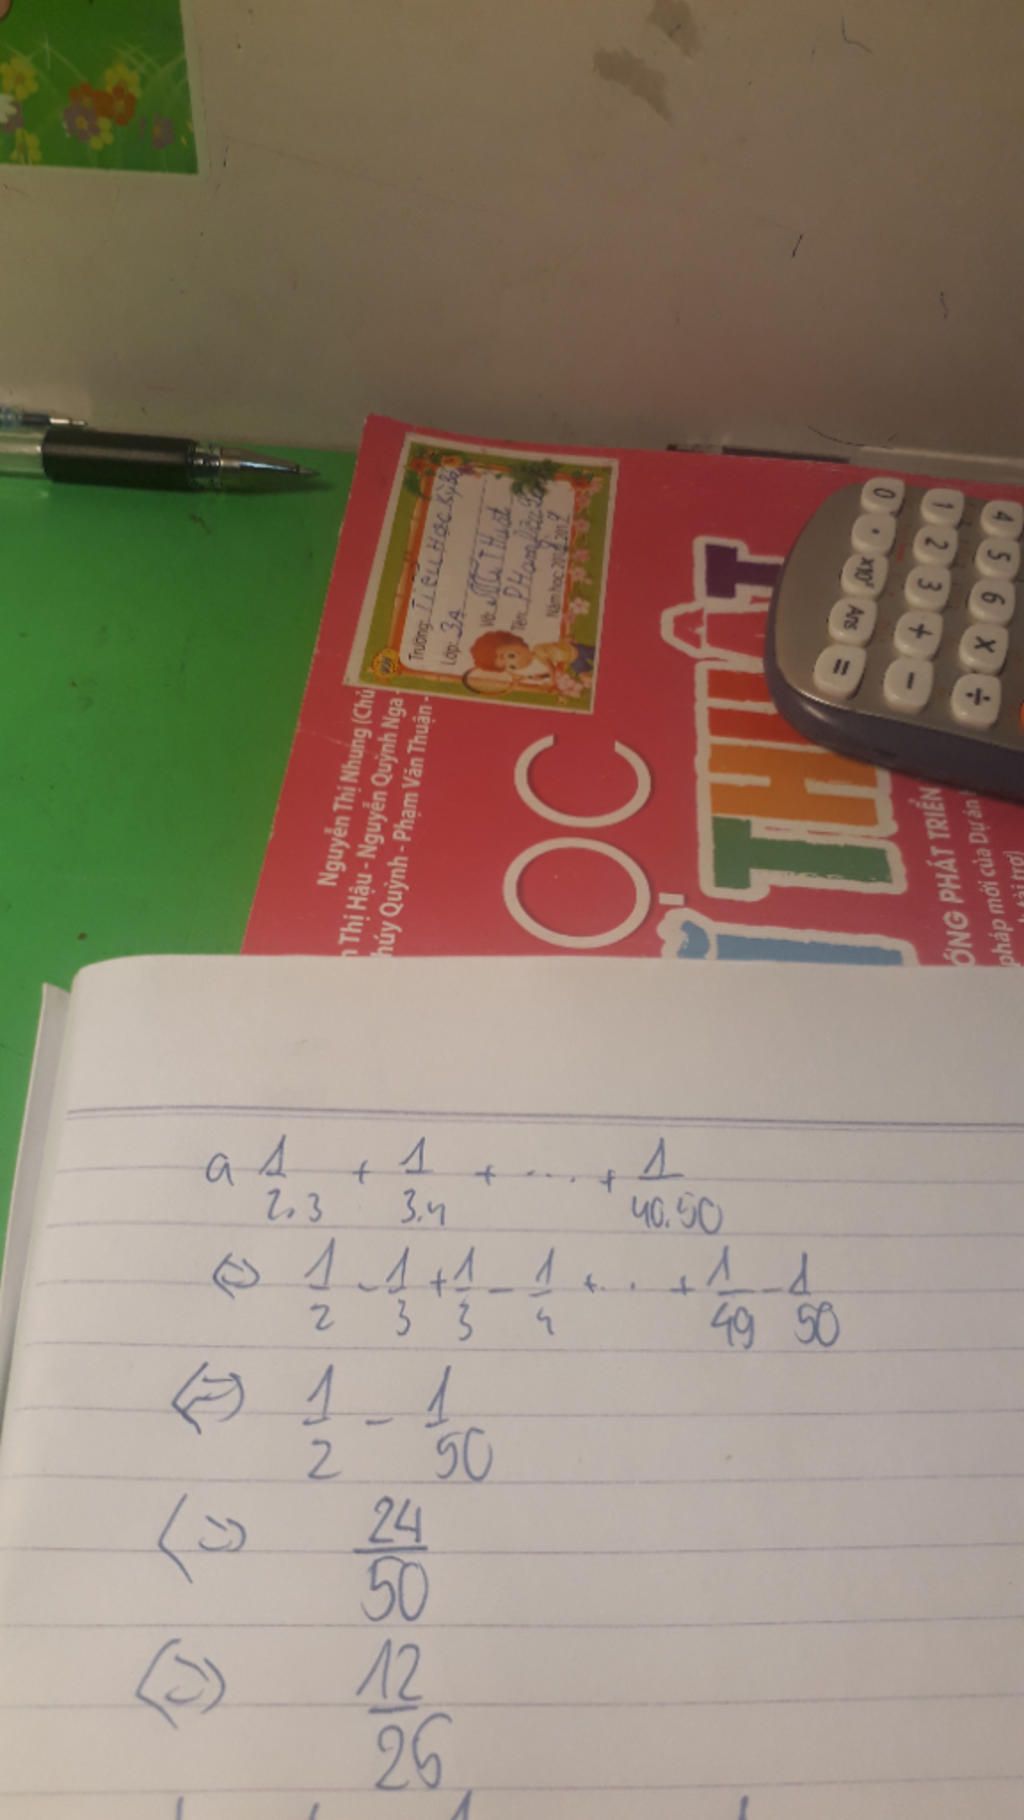 Trường: Tiểu Học
Lớp: 3A
Vở: Mĩ Thuật
Năm học:
Nguyễn Thị Nhung (Chủ
Thị Hậu - Nguyễn Quỳnh Nga
húy Quỳnh - Phạm Văn Thuận -
ỌC
THUẬT
ỐNG PHÁT TRIỂN
pháp mới của Dự án
tài trợ)
0 . x10ˣ Ans =
1 2 3 + -
4 5 6 x ÷
a 1/2.3 + 1/3.4 + .... + 1/40.50
⇔ 1/2 - 1/3 + 1/3 - 1/4 + ... + 1/49 - 1/50
⇔ 1/2 - 1/50
⇔ 24/50
⇔ 12/26